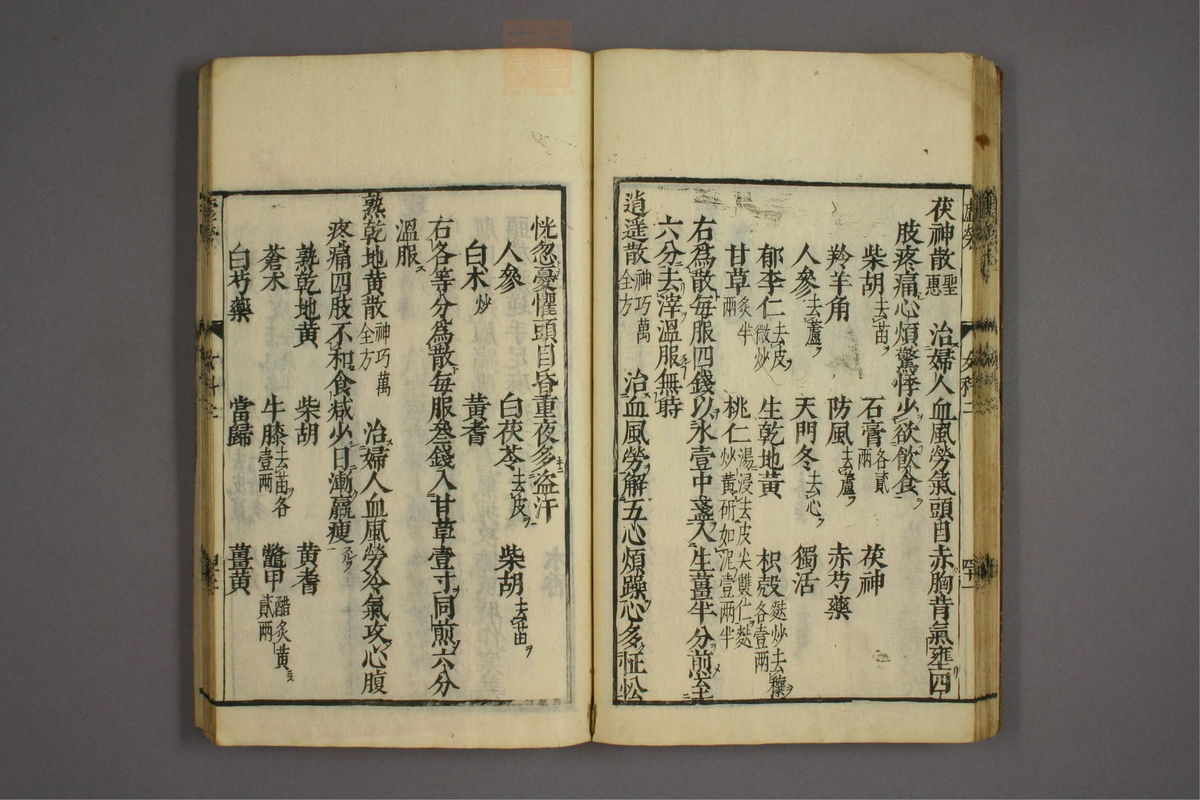 茯神散聖惠　治婦人血風勞氣頭目赤胸背氣壅四
肢疼痛心煩驚悸少欲飲食
柴胡去苗　石膏各貳兩　茯神
羚羊角　防風去蘆　赤芍藥
人參去蘆　天門冬去心　獨活
郁李仁去皮微炒　生乾地黄　枳殼麩炒去穰各壹兩
甘草炙半兩　桃仁湯浸去皮尖雙仁麩炒黄研如泥壹兩半
右爲散每服四錢以水壹中盞入生薑半分煎至
六分去滓溫服無時
逍遥散神巧萬全方　治血風勞解五心煩躁心多怔忪
恍忽憂懼頭目昏重夜多盗汗
人參　白茯苓去皮　柴胡去苗
白术炒　黄耆
右各等分爲散每服叁錢入甘草壹寸同煎六分
溫服
熟乾地黄散神巧萬全方　治婦人血風勞冷氣攻心腹
疼痛四肢不和食减少日漸羸瘦
熟乾地黄　柴胡　黄耆
蒼术　牛膝去苗各壹兩　鼈甲醋炙黄貳兩
白芍藥　當歸　薑黄
女科二